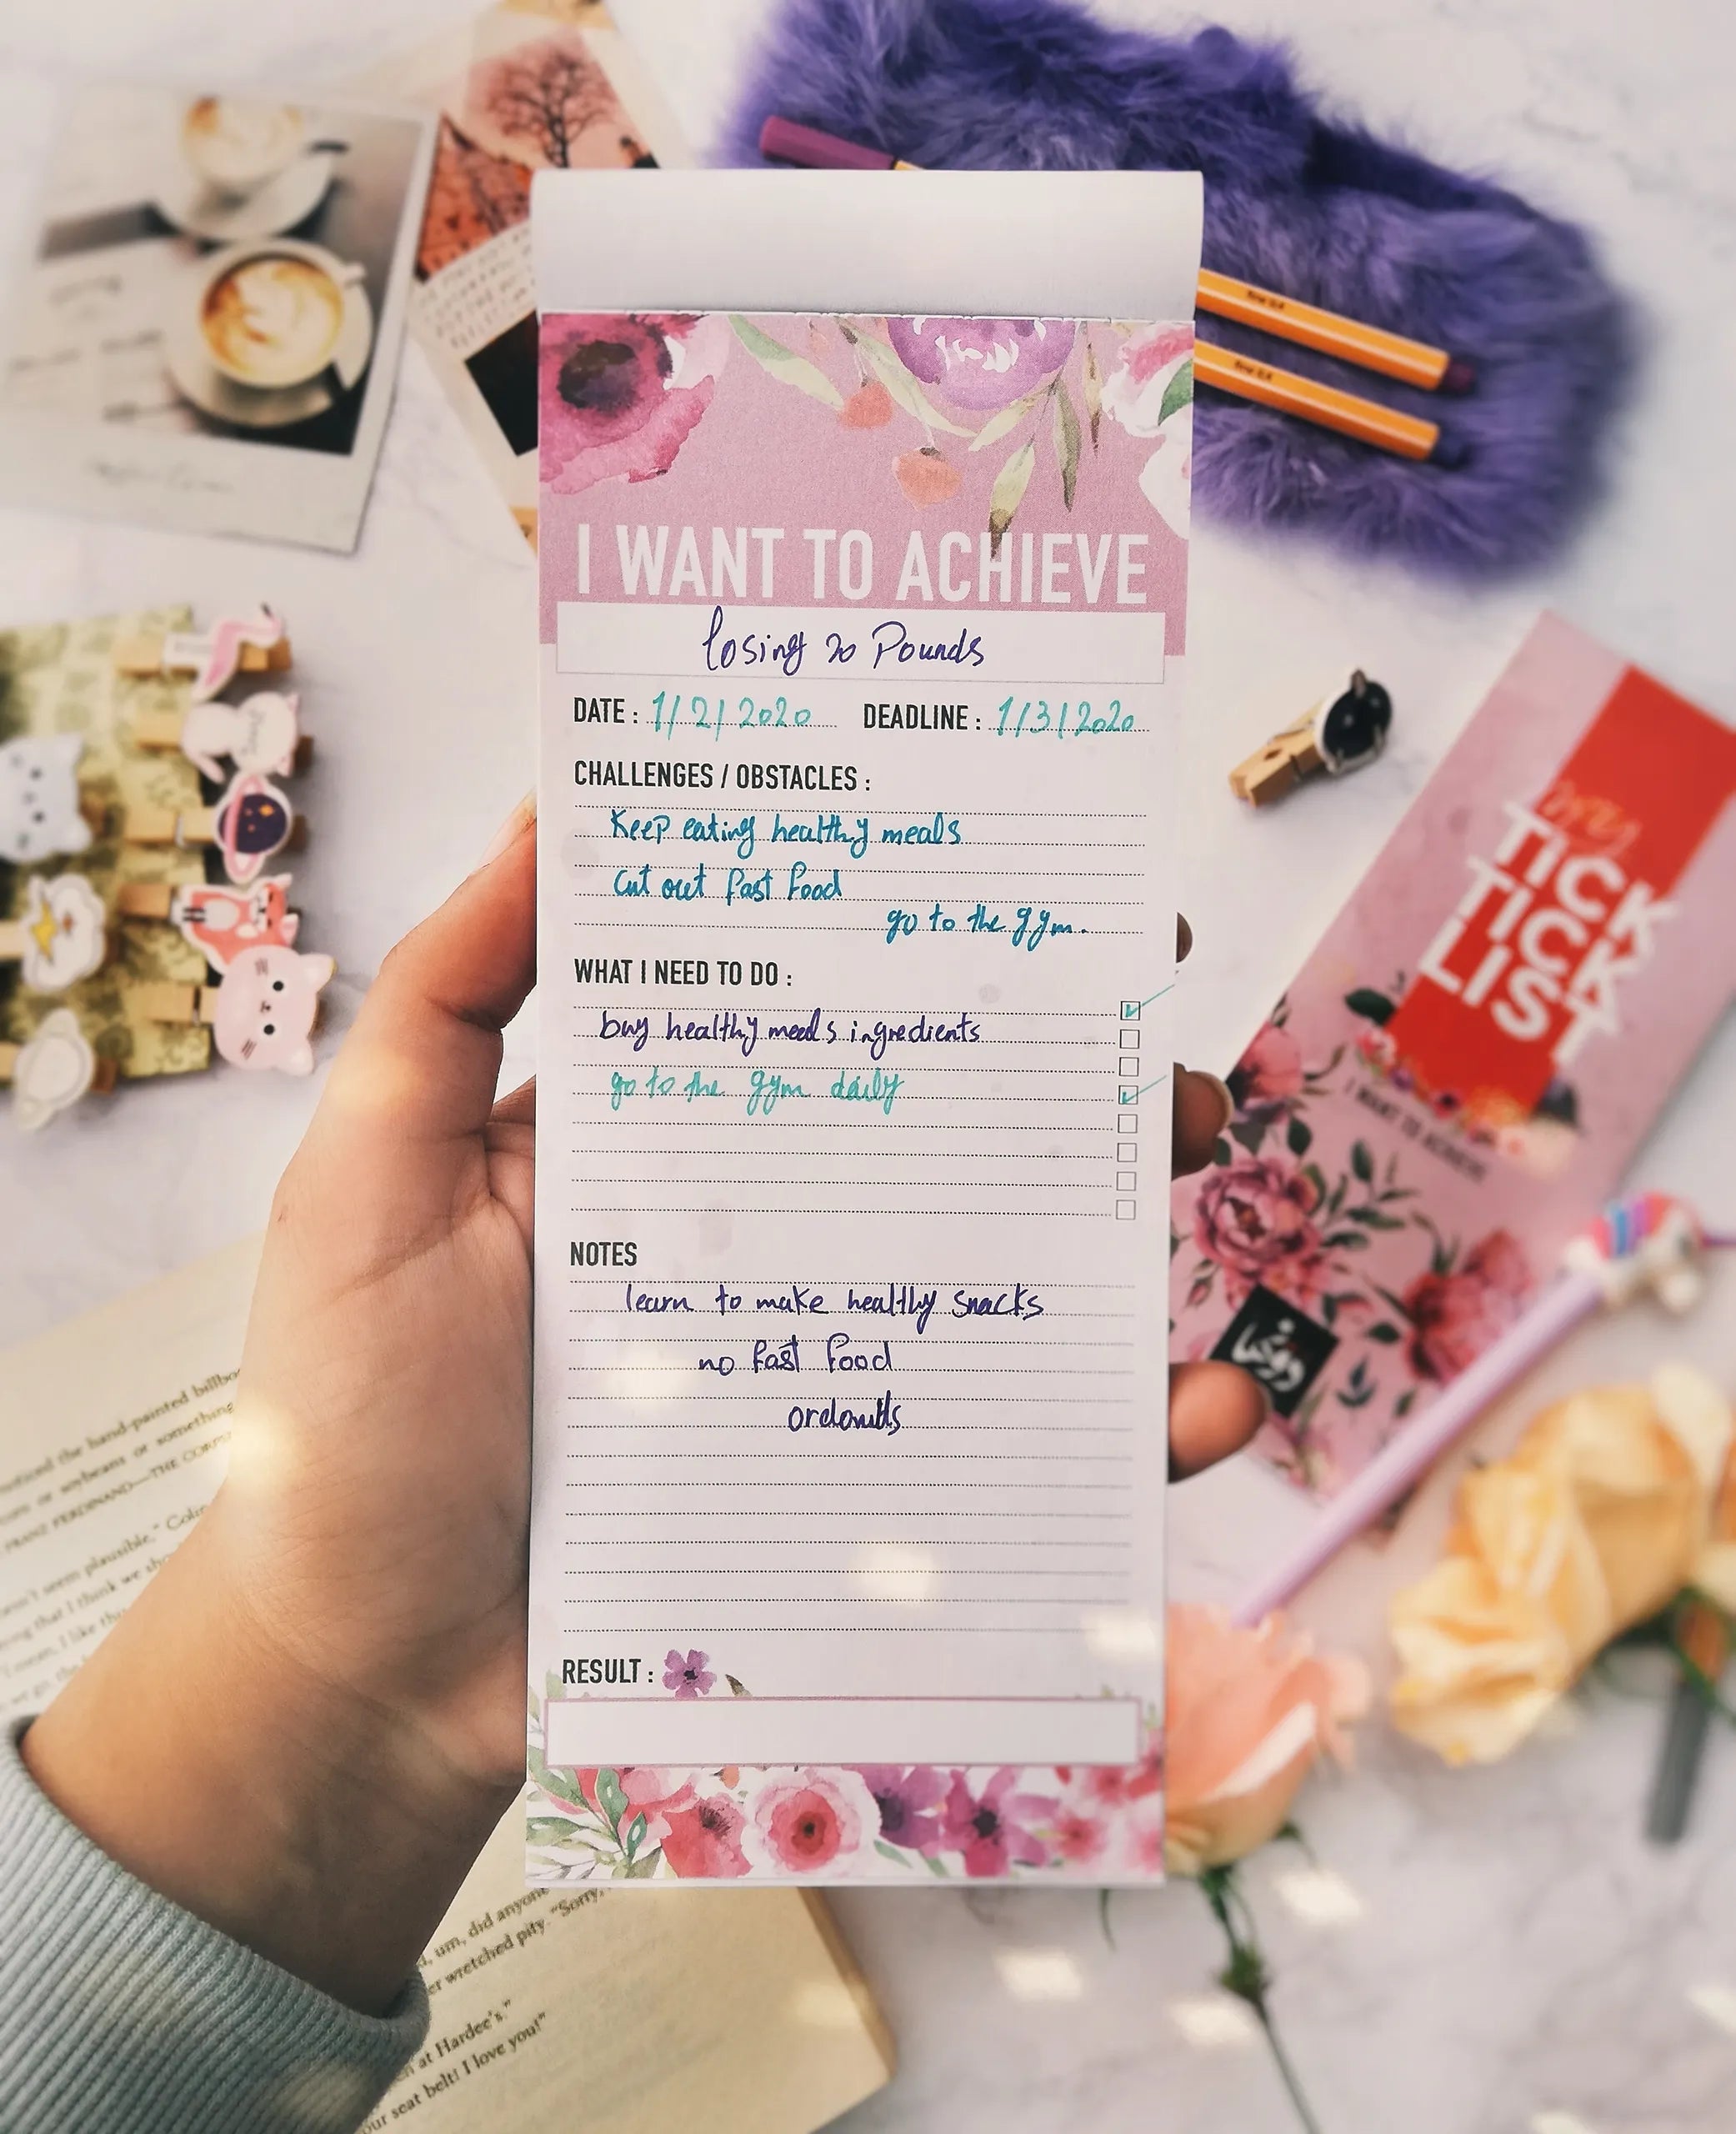 I WANT TO ACHIEVE
losing 20 Pounds
DATE : 1/2/2020 DEADLINE : 1/3/2020
CHALLENGES / OBSTACLES :
Keep eating healthy meals
Cut out fast food
go to the gym.
WHAT I NEED TO DO :
buy healthy meals ingredients
go to the gym daily
NOTES
learn to make healthy snacks
no fast food
RESULT :
my
TICK
TICK
LIST
I WANT TO ACHIEVE
noticed the hand-painted
or soybeans or something
FRANZ FERDINAND—THE
seem plausible."
that I think we
um, did anyone
wretched pity. "Sorry,
at Hardee's."
seat belt! I love you!"